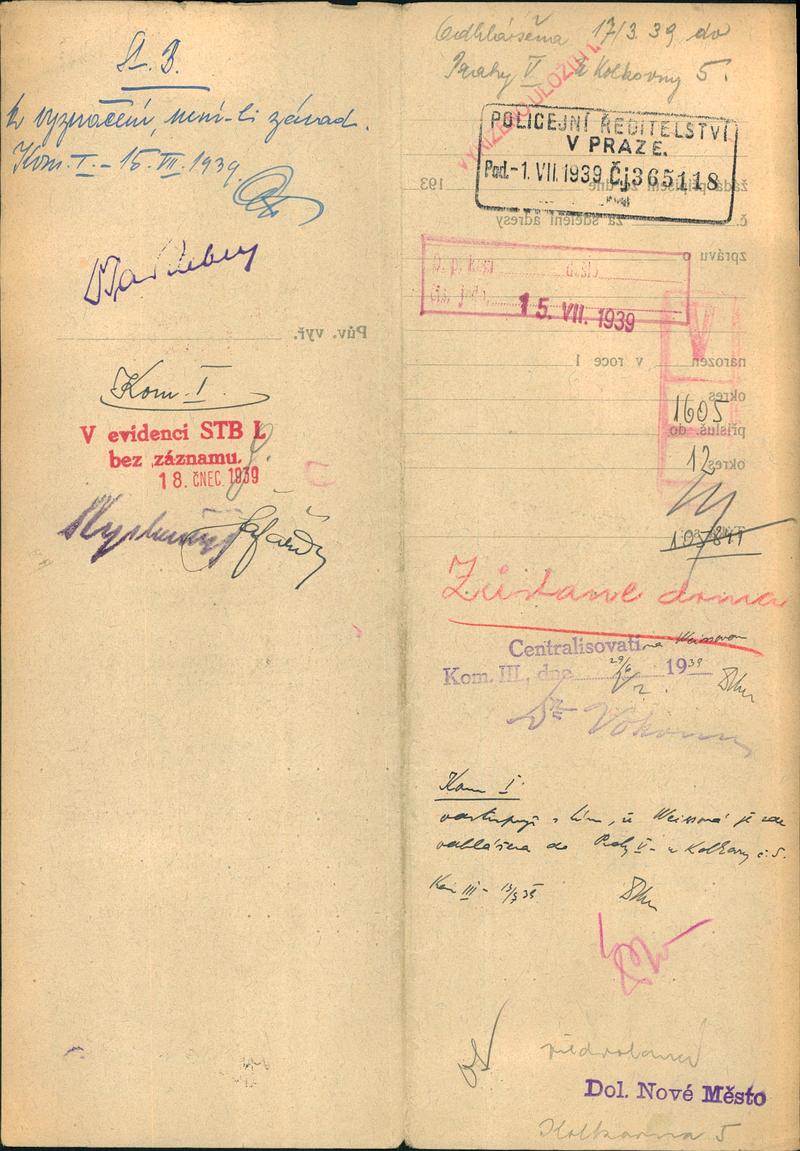 St. B.
k vyznačení, není-li závad.
Kom. I. - 15. VII. 1939.
Pův. vyř.
Kom. I.
V evidenci STB I.
bez záznamu.
18. ČNEC. 1939
Odhlášena 17/3. 39 do
Prahy V U Kolkovny 5.
POLICEJNÍ ŘEDITELSTVÍ
V PRAZE.
Pod. - 1. VII. 1939 Čj 365118
193
č. za sdělení adresy
zprávu o
došlo
15. VII. 1939
V
narozen v roce 1
okres
1605
přísluš. do
12
okres
Zůstane doma
Centralisovati na Weissovou
Kom. III., dne 29/6 1939
Dr Vokoun
Kom I.
s tím, že Weissová je zde
odhlášena do Prahy V - u Kolkovny č. 5.
Kom III -
Dol. Nové Město
Kolkovna 5